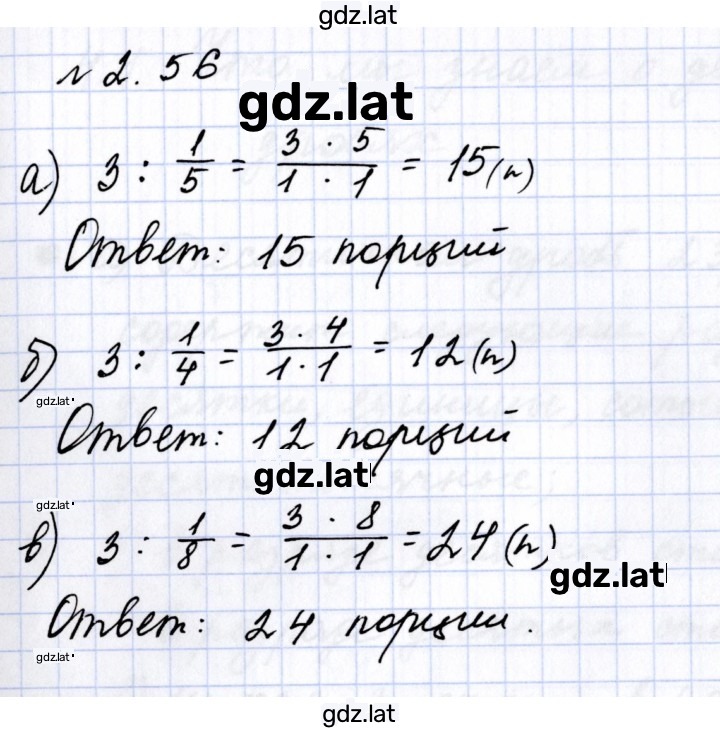 gdz.lat
№ 2.56
gdz.lat
а) 3 : 1/5 = (3 · 5)/(1 · 1) = 15 (п)
Ответ: 15 порций
б) 3 : 1/4 = (3 · 4)/(1 · 1) = 12 (п)
gdz.lat
Ответ: 12 порций
gdz.lat
gdz.lat
в) 3 : 1/8 = (3 · 8)/(1 · 1) = 24 (п)
gdz.lat
Ответ: 24 порции.
gdz.lat
gdz.lat